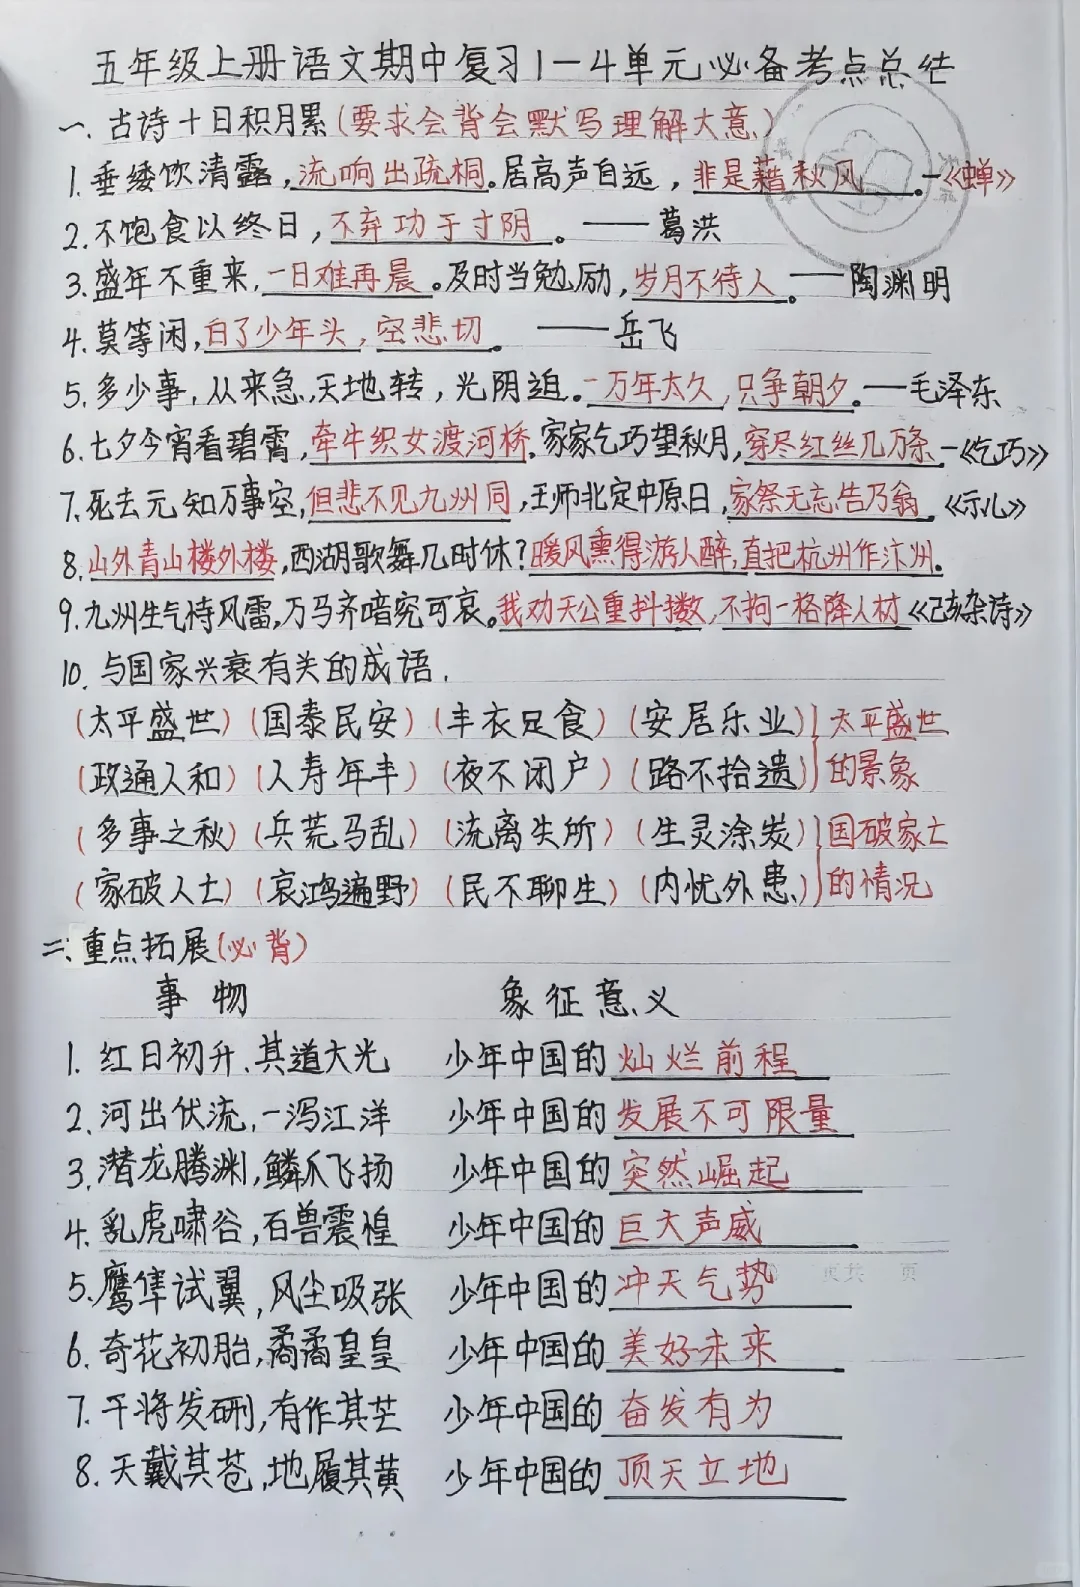 五年级上册语文期中复习1-4单元必备考点总结
一、古诗十日积月累(要求会背会默写理解大意)
1.垂緌饮清露,流响出疏桐。居高声自远,非是藉秋风。-《蝉》
2.不饱食以终日,不弃功于寸阴。——葛洪
3.盛年不重来,一日难再晨。及时当勉励,岁月不待人。——陶渊明
4.莫等闲,白了少年头,空悲切。——岳飞
5.多少事,从来急,天地转,光阴迫。一万年太久,只争朝夕。—毛泽东
6.七夕今宵看碧霄,牵牛织女渡河桥.家家乞巧望秋月,穿尽红丝几万条-《乞巧》
7.死去元知万事空,但悲不见九州同,王师北定中原日,家祭无忘告乃翁.《示儿》
8.山外青山楼外楼,西湖歌舞几时休?暖风熏得游人醉,直把杭州作汴州.
9.九州生气恃风雷,万马齐喑究可哀。我劝天公重抖擞,不拘一格降人材《己亥杂诗》
10.与国家兴衰有关的成语.
(太平盛世)(国泰民安)(丰衣足食)(安居乐业)}太平盛世
(政通人和)(人寿年丰)(夜不闭户)(路不拾遗)}的景象
(多事之秋)(兵荒马乱)(流离失所)(生灵涂炭)}国破家亡
(家破人亡)(哀鸿遍野)(民不聊生)(内忧外患)}的情况
二、重点拓展(必背)
事物 象征意义
1.红日初升,其道大光 少年中国的灿烂前程
2.河出伏流,一泻汪洋 少年中国的发展不可限量
3.潜龙腾渊,鳞爪飞扬 少年中国的突然崛起
4.乳虎啸谷,百兽震惶 少年中国的巨大声威
5.鹰隼试翼,风尘吸张 少年中国的冲天气势
6.奇花初胎,矞矞皇皇 少年中国的美好未来
7.干将发硎,有作其芒 少年中国的奋发有为
8.天戴其苍,地履其黄 少年中国的顶天立地